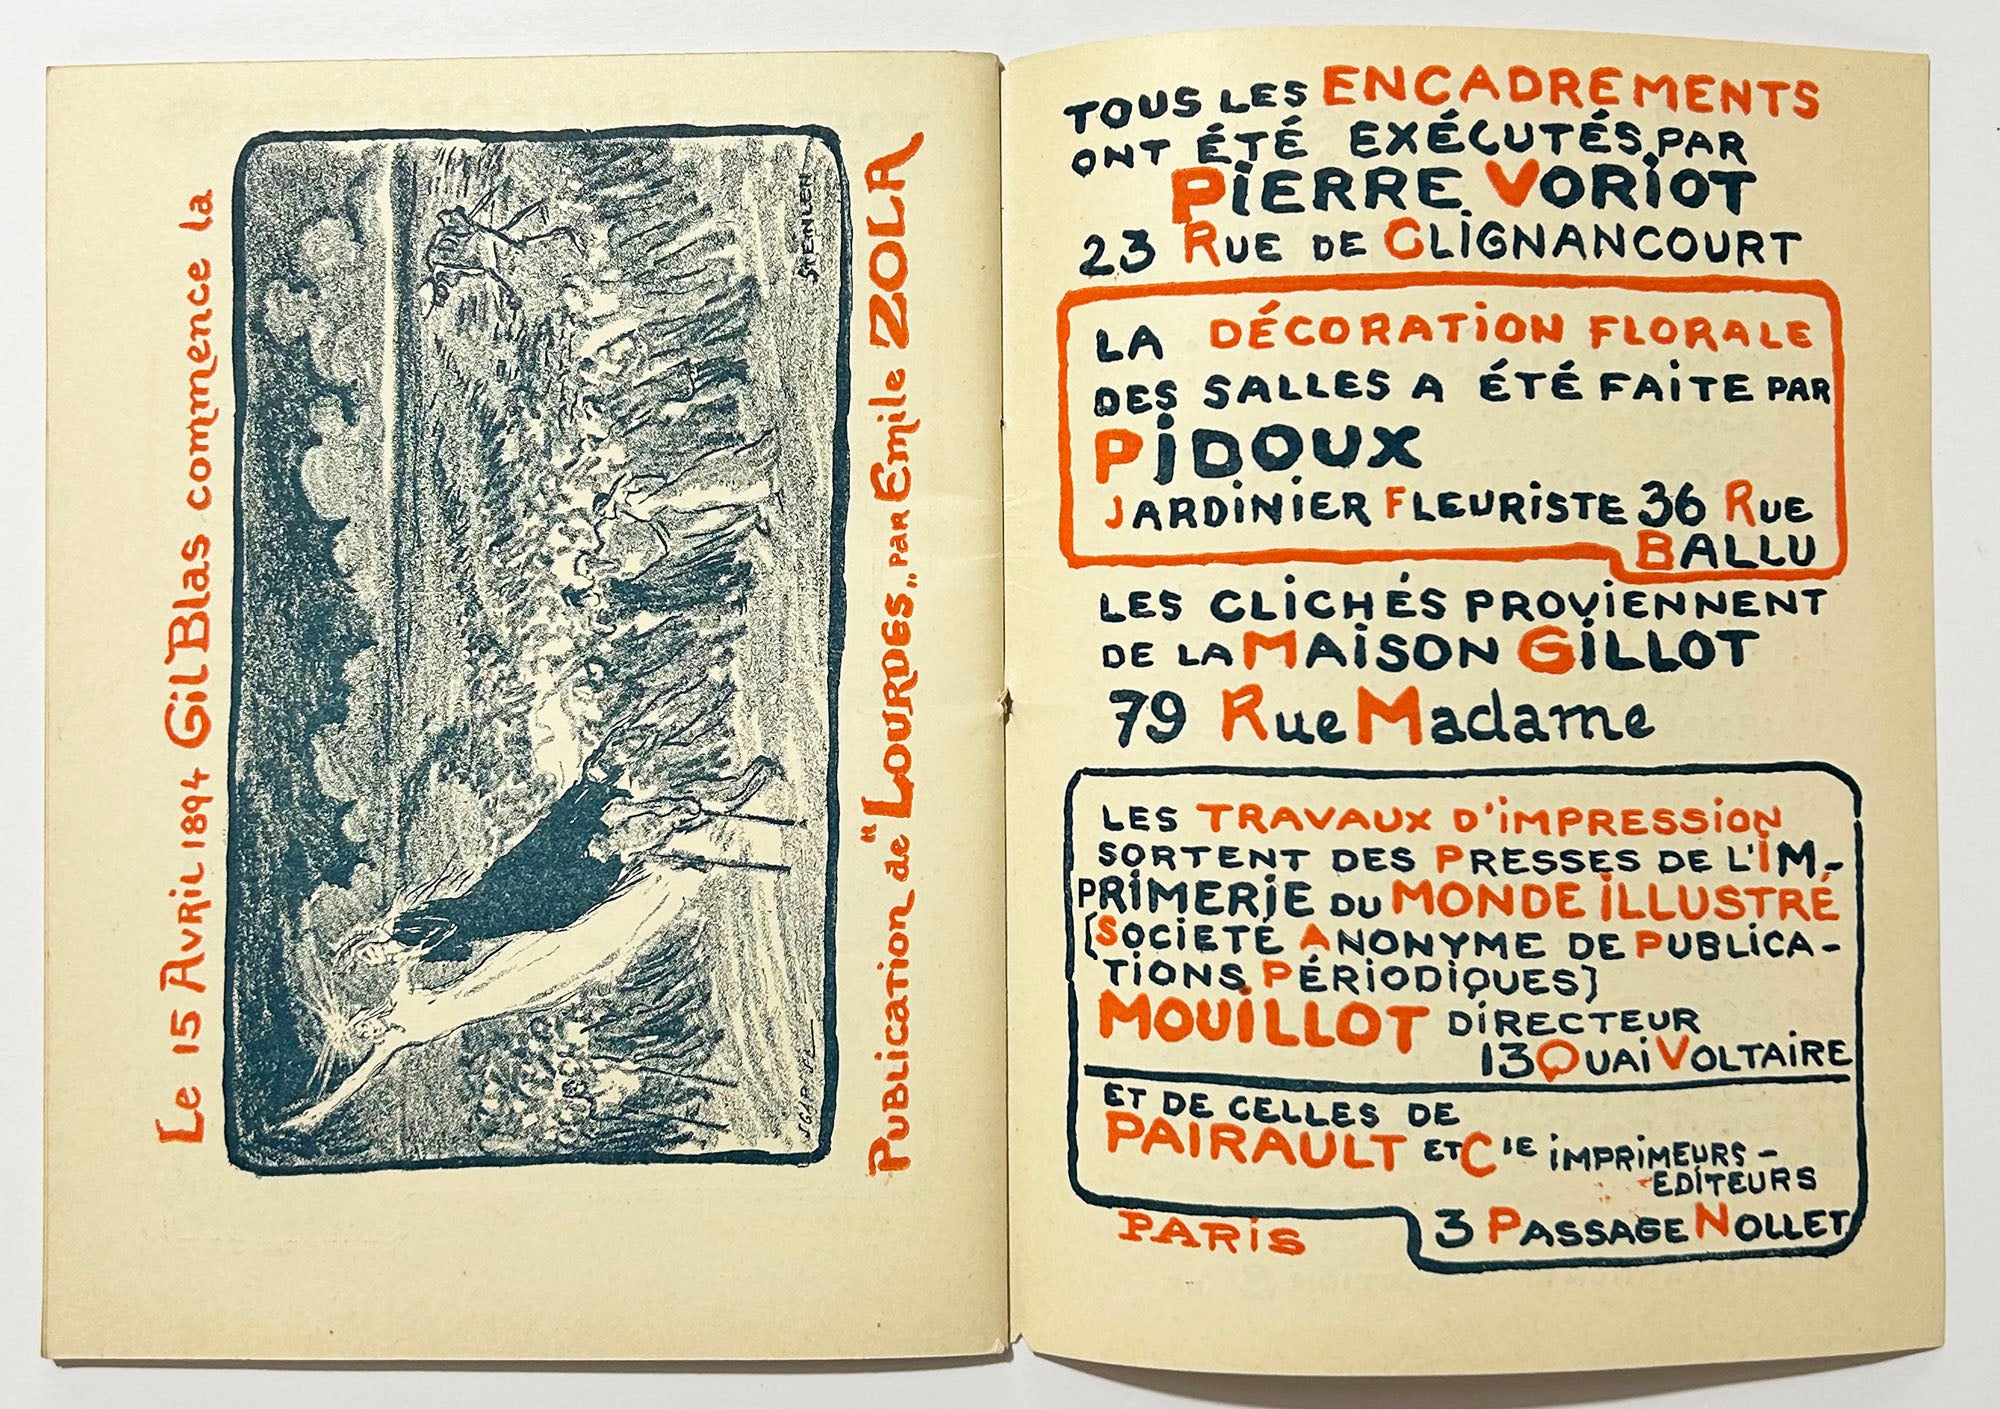 Le 15 Avril 1894 Gil Blas commence la
STEINLEN
Publication de "Lourdes„ par Emile ZOLA
TOUS LES ENCADREMENTS
ONT ÉTÉ EXÉCUTÉS PAR
PIERRE VORIOT
23 RUE DE CLIGNANCOURT
LA DÉCORATION FLORALE
DES SALLES A ÉTÉ FAITE PAR
PIDOUX
JARDINIER FLEURISTE 36 RUE
BALLU
LES CLICHÉS PROVIENNENT
DE LA MAISON GILLOT
79 Rue Madame
LES TRAVAUX D'IMPRESSION
SORTENT DES PRESSES DE L'IM-
PRIMERIE DU MONDE ILLUSTRÉ
(SOCIETÉ ANONYME DE PUBLICA-
TIONS PÉRIODIQUES)
MOUILLOT DIRECTEUR
13 QUAI VOLTAIRE
ET DE CELLES DE
PAIRAULT ET CIE IMPRIMEURS-
EDITEURS
3 PASSAGE NOLLET
PARIS